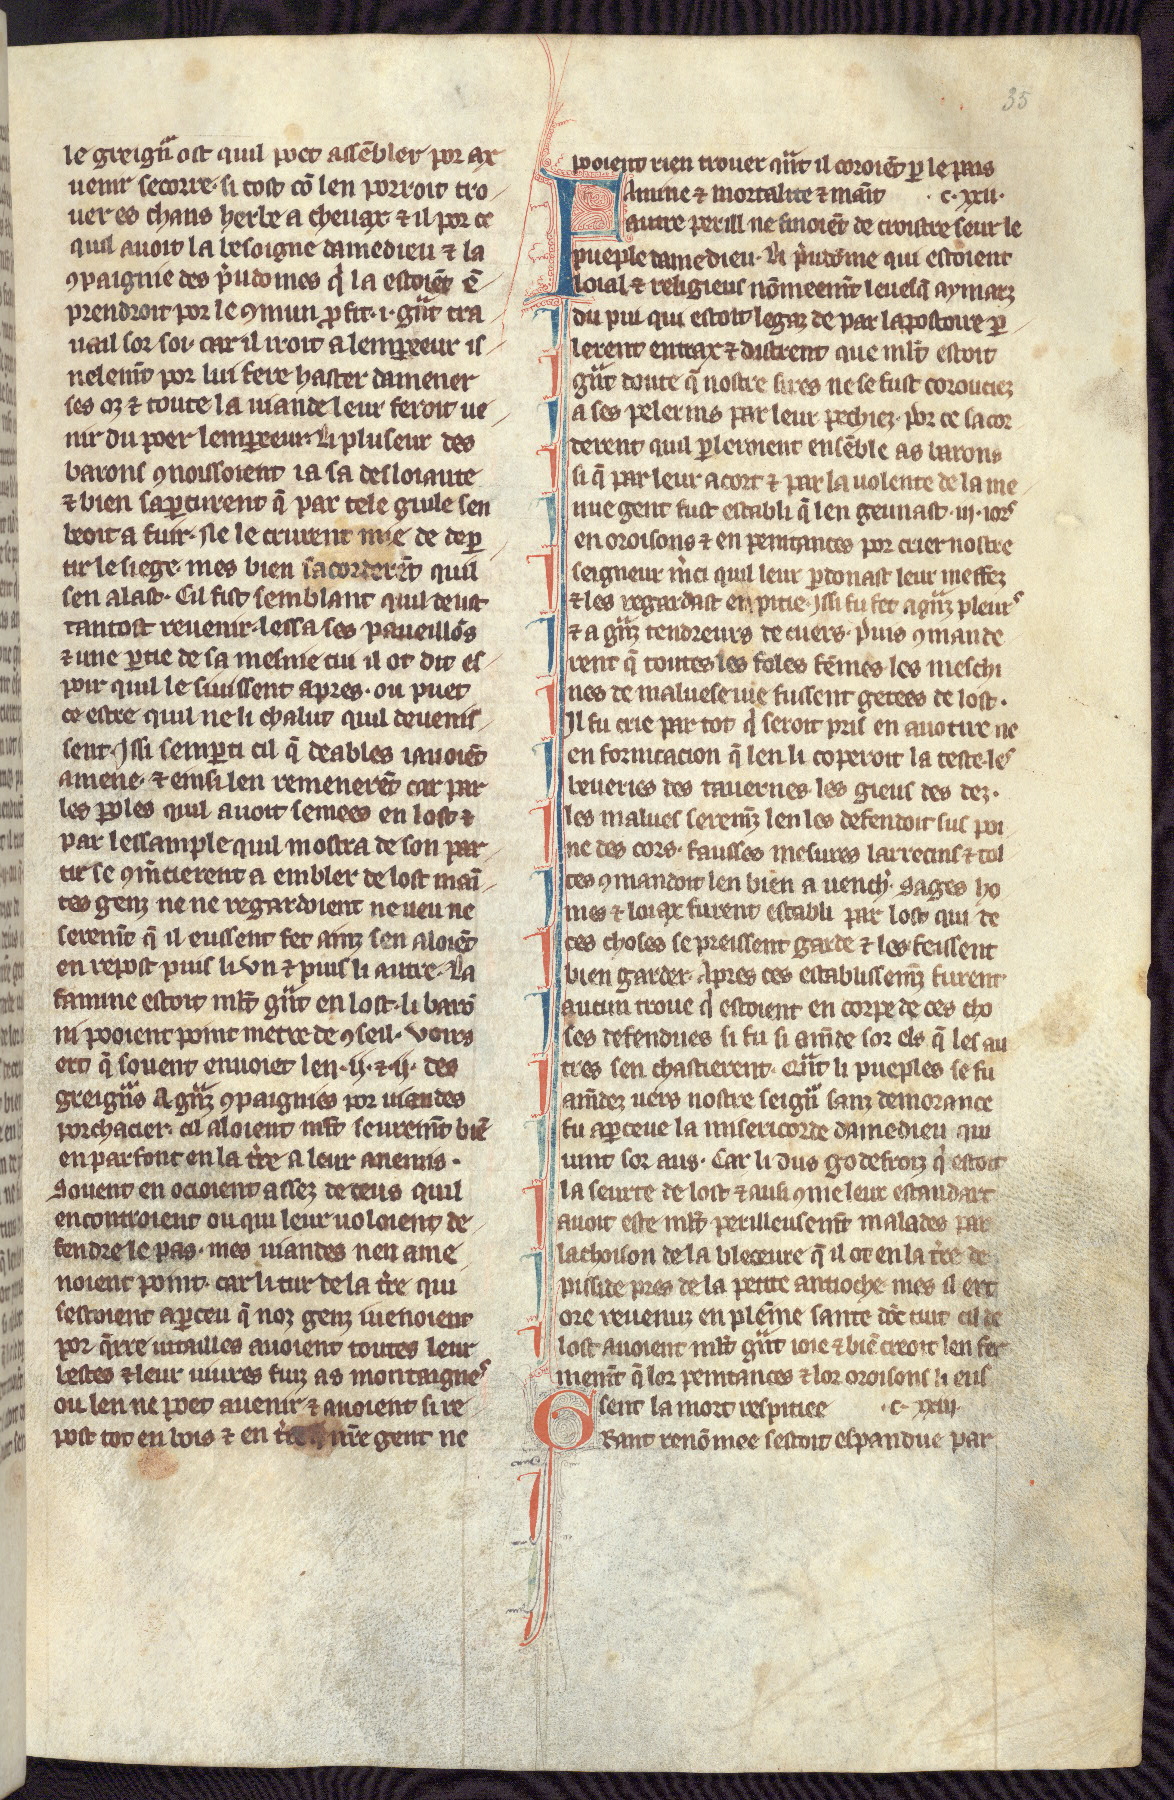 35
le greignr̄ ost quil poet assēbler por ax
venir secorre. si tost cō len porroit tro
ver es chans herbe a chevax ⁊ il por ce
quil avoit la besoigne damedieu ⁊ la
ꝯpaignie des p̓udomes q̓ la estoiēt ē
prendroit por le ꝯmun ꝓfit .i. gn̄t tra
vail sor soi. car il iroit a lemꝑeeur is
nelem̄t por lui fere haster damener
ses oz ⁊ toute la viande leur feroit ve
nir du poer lemꝑeeur. Li pluseur des
barons ꝯnoissoient ia sa desloiaute
⁊ bien saꝑcurent q̄ par tele guile sen
beoit a fuir. Ne le crurent mie de deꝑ
tir le siege. mes bien sacorderēt quil
sen alast. Cil fist semblant quil deust
tantost revenir. lessa ses paveillōs
⁊ une ꝑtie de sa mesnie cui il ot dit es
poir quil le suissent apres. ou puet
ce estre quil ne li chalut quil devenis
sent. Issi semꝑti cil q̄ deables i avoiēt
amene. ⁊ einsi len remenerēt car par
les ꝑoles quil avoit semees en lost ⁊
par lessample quil mostra de son par
tir se ꝯm̄cierent a embler de lost mai̅
tes genz ne ne regardoient ne veu ne
serem̄t q̄ il eussent fet ainz sen aloiēt
en repost puis li un ⁊ puis li autre. La
famine estoit ml̄t gn̄t en lost. li barō
ni pooient point metre de ꝯseil. Voirs
ert q̄ sovent envoiet len .ij. ⁊ .ij. des
greignrs̄ A gn̄z ꝯpaignies por viandes
porchacier. cil aloient ml̄t seurem̄t biē
en parfont en la t̄re a leur anemis.
Sovent en ocioient assez de ceus quil
encontroient ou qui leur voloient de
fendre le pas. mes viandes nen ame
noient point. car li tur de la t̄re qui
sestoient aꝑceu q̄ noz genz i venoient
por q̄rre vitailles avoient toutes leur
bestes ⁊ leur vivres fuiz as montaignes
ou len ne poet avenir ⁊ avoient si re
post tot en bois ⁊ en nr̄e gent ne
pooient rien trover qn̄t il coroiēt ꝑ le pais
Famine ⁊ mortalite ⁊ mai̅t .c.xxii.
autre perill ne finoiēt de croistre seur le
pueple damedieu. Li p̓udōme qui estoient
loial ⁊ religieus nōmeem̄t levesq̄ aymarz
du pui qui estoit legaz de par lapostoire ꝑ
lerent entrax ⁊ distrent que ml̄t estoit
gn̄t doute q̄ nostre sires ne se fust corouciez
a ses pelerins par leur pechiez. Por ce sacor
derent quil ꝑlerment ensēble as barons
si q̄ par leur acort ⁊ par la volente de la me
nue gent fust establi q̄ len geunast .iii. iors
en oroisons ⁊ en penitances por crier nostre
seigneur m̓ci quil leur ꝑdonast leur meffez
⁊ les regardast en pitie. Issi fu fet a gn̄z pleurs
⁊ a gn̄z tendreurs de cuers. Puis ꝯmande
rent q̄ toutes les foles fēmes les meschi
nes de malvese vie fussent getees de lost.
Il fu crie par tot q̓ seroit pris en avotire ne
en fornication q̄ len li coperoit la teste. les
beveries des tavernes. les gieus des dez.
les malves serem̄z len les defendoit sus poi
ne des cors. fausses mesures larrecins ⁊ tol
tes ꝯmandoit len bien a vench̓. Sages ho
mes ⁊ loiax furent establi par lost qui de
ces choses se preissent garde ⁊ les feissent
bien garder. Apres ces establissem̄z furent
aucun trove q̓ estoient en corpe de ces cho
ses defendues si fu si am̄de sor els q̄ les au
tres sen chastierent. Qn̄t li pueples se fu
am̄dez vers nostre seignr̄ sanz demorance
fu aꝑceue la misericorde damedieu qui
vint sor aus. Car li dus godefroiz q̓ estoit
la seurte de lost ⁊ ausi ꝯme leur estandart
avoit este ml̄t perilleusem̄t malades par
lachoison de la bleceure q̄ il ot en la t̄re de
pisside pres de la petite antioche mes il ert
ore revenuz en pleīne sante dōc tuit cil de
lost avoient ml̄t gn̄t ioie ⁊ biē creoit len fer
mem̄t q̄ lor penitances ⁊ lor oroisons li eus
sent la mort respitiee .c.xxiii.
Grant renōmee sestoit espandue par